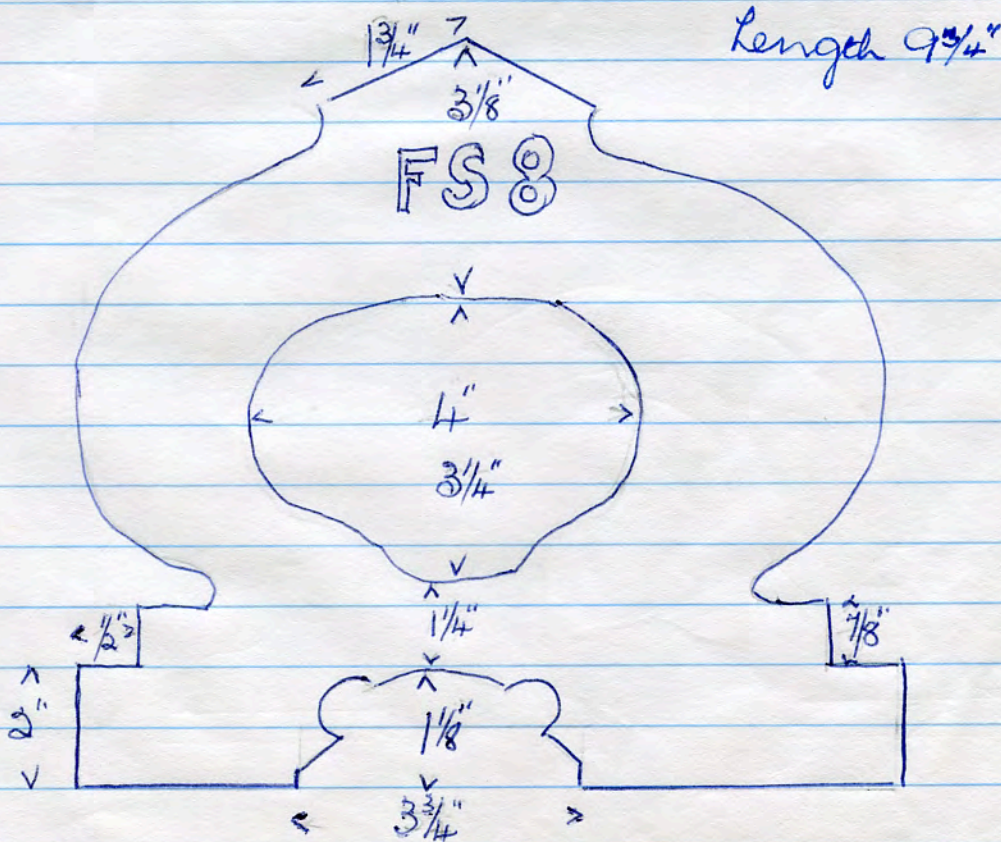 Length 9 3/4"
1 3/4"
3 1/8"
FS8
4"
3 1/4"
1 1/4"
1/2"
7/8"
2"
1 1/8"
3 3/4"